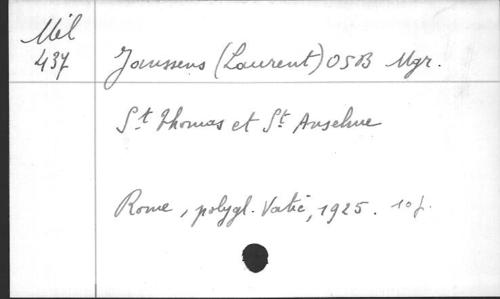 Mél
437
Janssens (Laurent) OSB Mgr.
St. Thomas et St. Anselme
Rome, polygl. Vatic, 1925. 10 f.